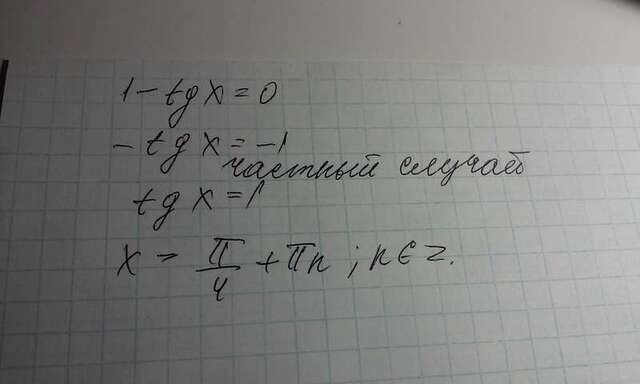 1 - tg x = 0
- tg x = -1
частный случай
tg x = 1
x = π/4 + πn ; n ∈ z.